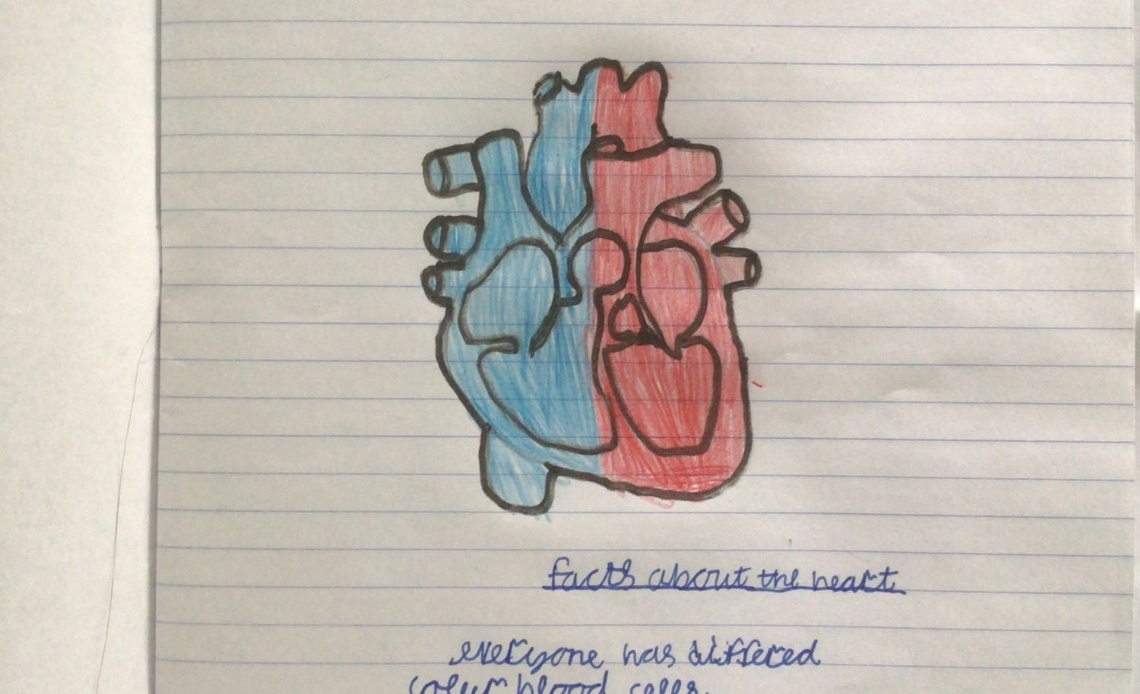 facts about the heart
everyone has differed
colour blood cells.